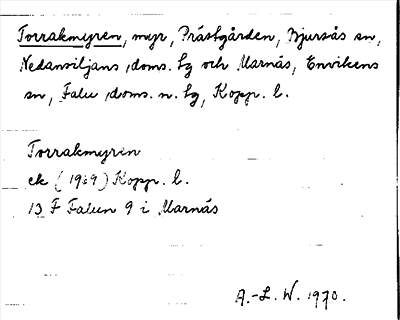 Torrakmyren, myr, Prästgården, Bjursås sn,
Nedansiljans doms. tg och Marnäs, Envikens
sn, Falu doms. n. tg, Kopp. l.
Torrakmyren
ek (1969) Kopp. l.
13 F Falun 9 i Marnäs
A.-L. W. 1970.